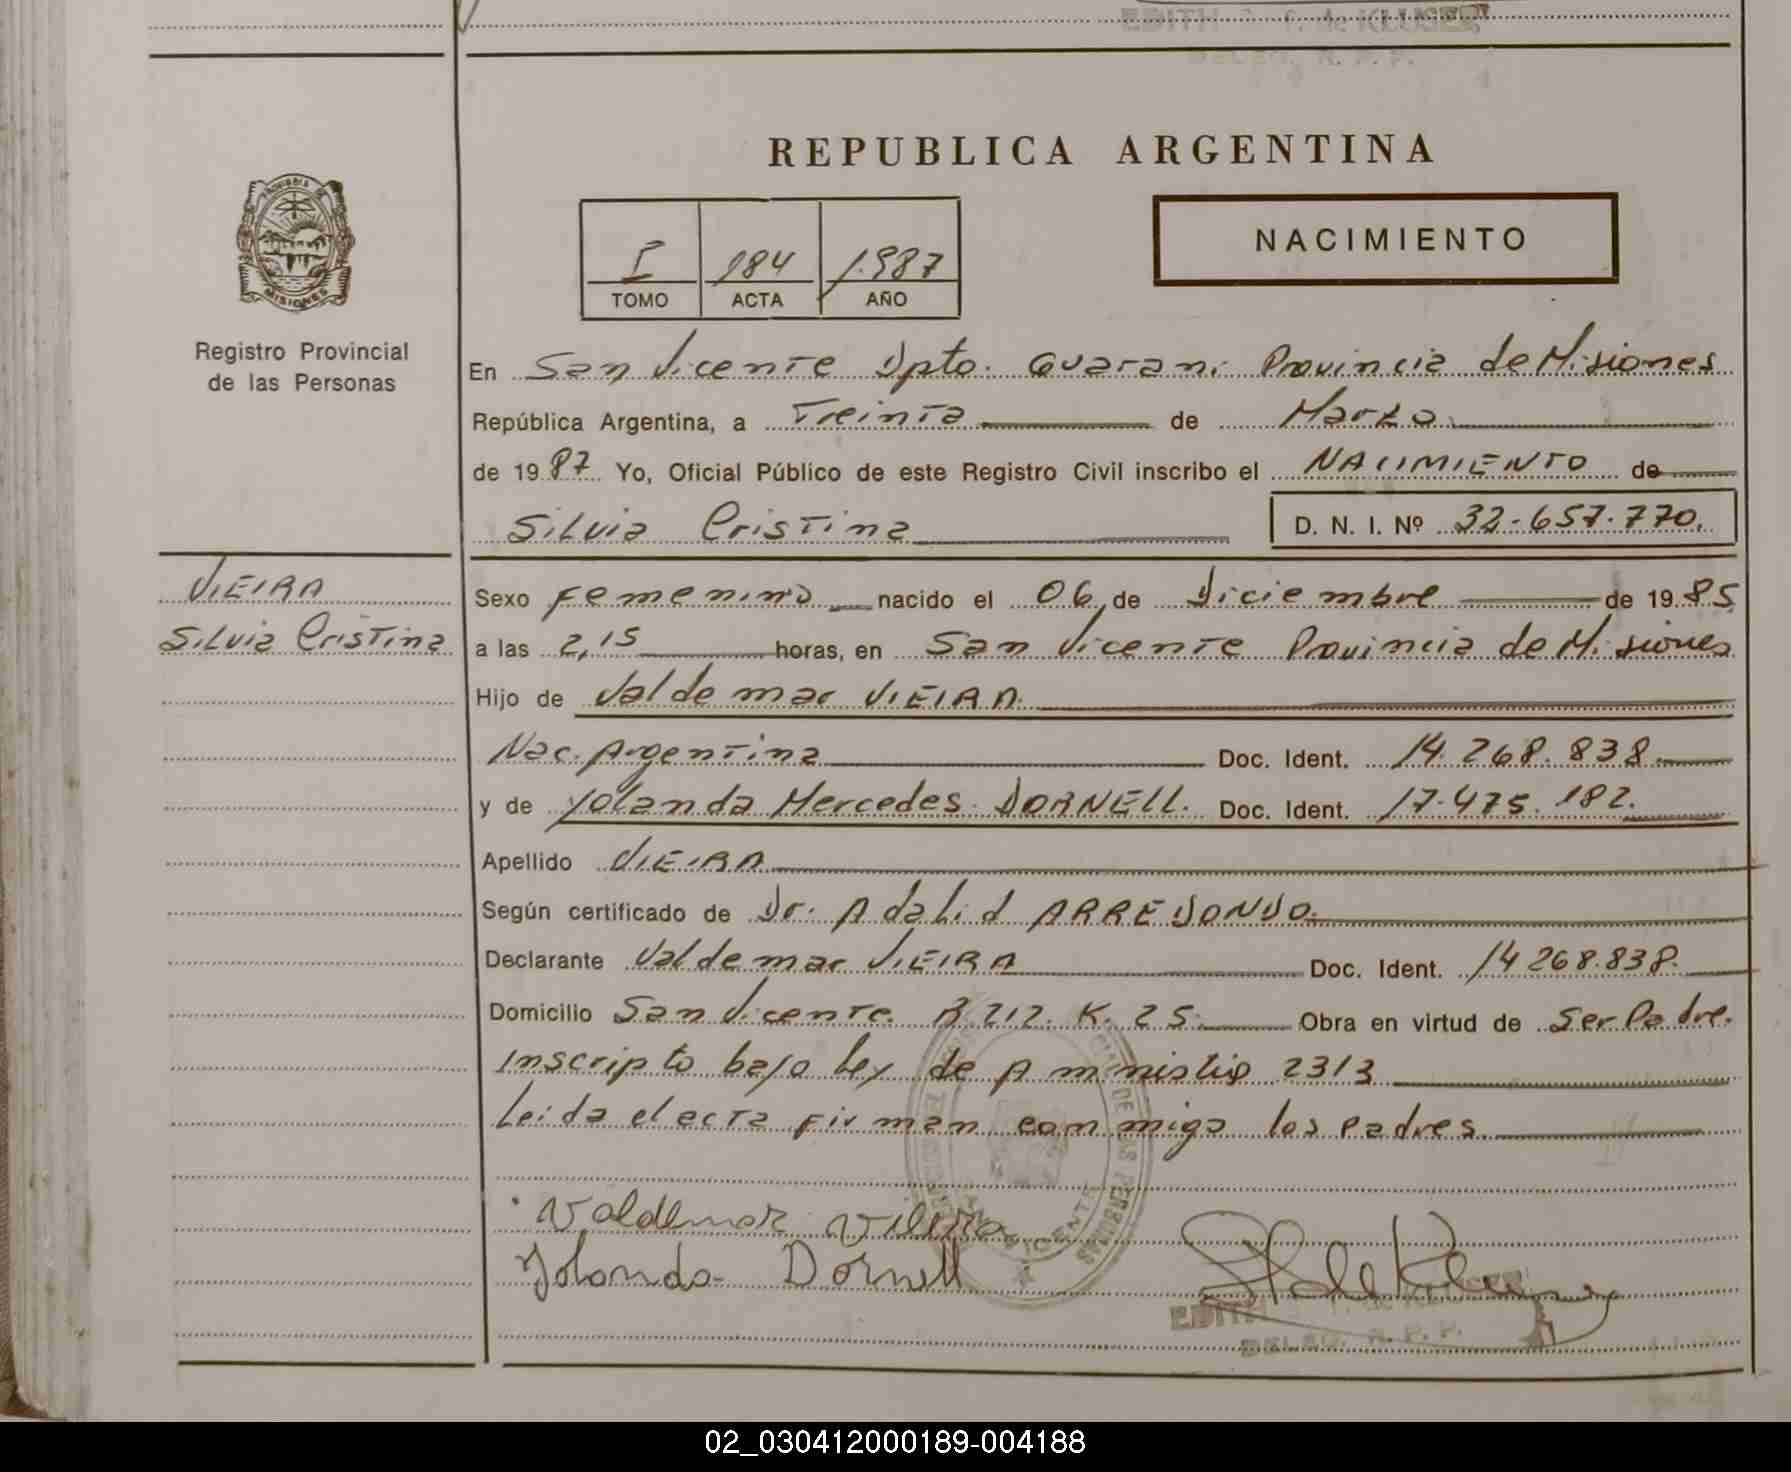 EDITH de KLUSER
DELEG. R. P. P.
REPUBLICA ARGENTINA
NACIMIENTO
I 184 1.987
TOMO ACTA AÑO
PROVINCIA DE
MISIONES
Registro Provincial
de las Personas
En San Vicente Dpto. Guarani Provincia de Misiones
República Argentina, a Treinta de Marzo
de 1987 Yo, Oficial Público de este Registro Civil inscribo el NACIMIENTO de
Silvia Cristina D. N. I. Nº 32.657.770.
VIEIRA
Silvia Cristina
Sexo Femenino nacido el 06 de Diciembre de 1985
a las 2,15 horas, en San Vicente Provincia de Misiones
Hijo de Valdemar VIEIRA
Nac. Argentina Doc. Ident. 14.268.838
y de Yolanda Mercedes DORNELL. Doc. Ident. 17.475.182.
Apellido VIEIRA
Según certificado de Dr. Adalid ARREDONDO.
Declarante Valdemar VIEIRA Doc. Ident. 14 268.838.
Domicilio San Vicente. R.212. K. 25. Obra en virtud de Ser Padre.
Inscripto bajo Ley de Amnistia 2313
Leida el acta firman conmigo los padres
Valdemar Vieira
Yolanda Dornell
EDITH de KLUSER
DELEG. R. P. P.
02_030412000189-004188